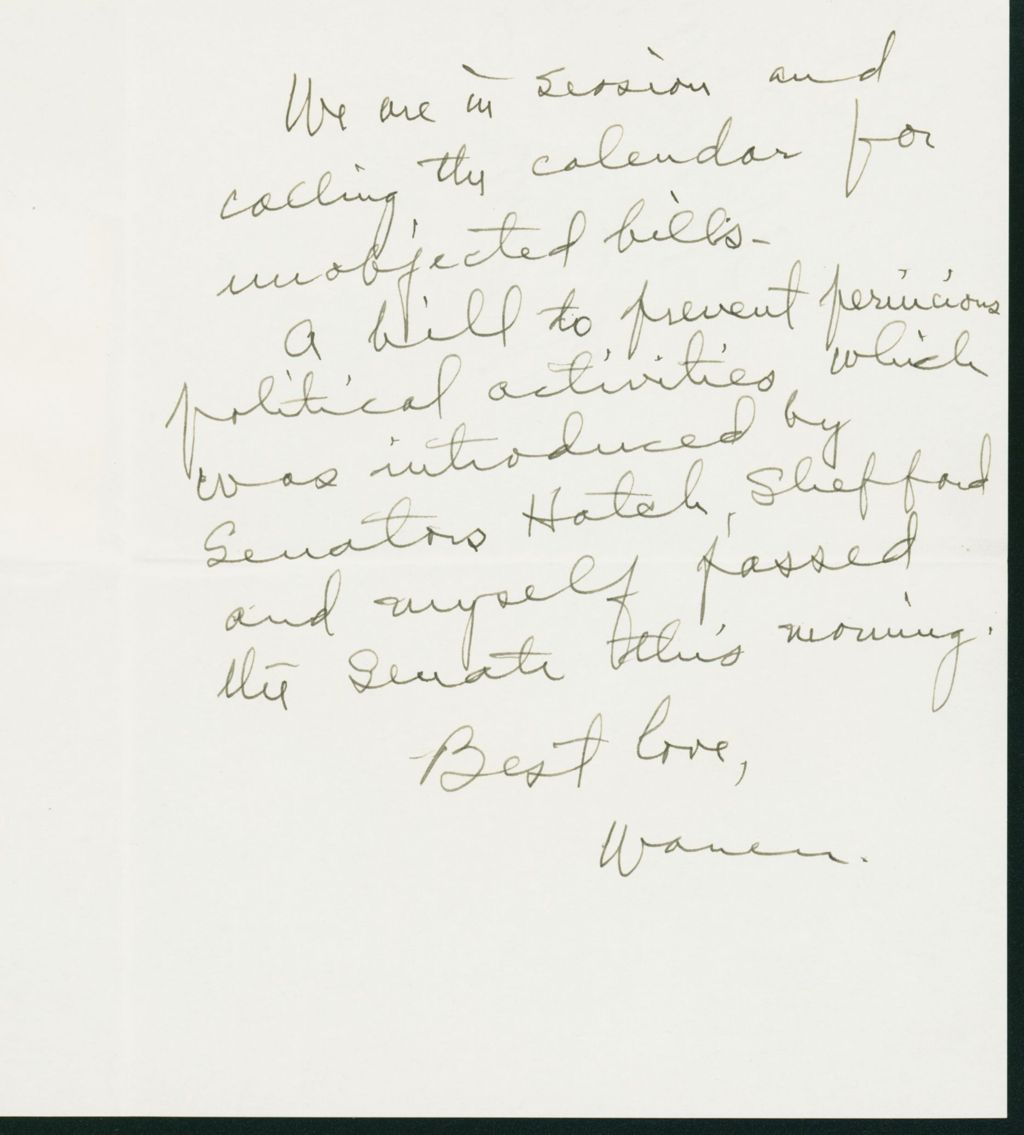 We are in session and
calling the calendar for
unobjected bills-
A bill to prevent pernicious
political activities, which
was introduced by
Senators Hatch, Sheppard
and myself passed
the Senate this morning.
Best love,
Warren.